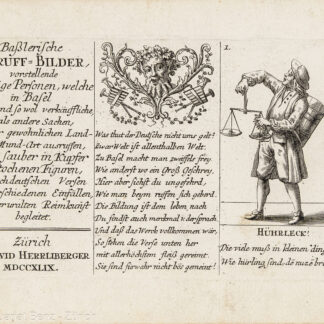 Baßlerische
RUFF=BILDER,
vorstellende
ige Personen, welche
in Basel
und so wol verkäuffliche
als andere Sachen,
der gewohnlichen Land-
Mund-Art ausruffen,
sauber in Kupfer
stochenen Figuren,
hochdeutschen Versen
verschiedenen Einfällen,
Reimkunst
begleitet.
Zürich
VID HERRLIBERGER
MDCCXLIX.
Was thut der Deutsche nicht ums gelt?
Zwar Welt ist allenthalben Welt.
Zu Basel macht man zweifels frey
Wie anderst wo ein Groß Geschrey.
Hier aber sihst du ungefehrd,
Wie man beym ruffen sich gebärd.
Die Bildung ist dem leben nach
Du findst auch merckmal der sprach
Und daß das Werck vollkommen wür,
So stehen die Verse unten her
mit allerhöchstem fleiß gereimt.
Sie sind fürwahr nicht bös gemeint!
1.
HÜHRLECK!
Die viele muß in kleinen ding
Wie hürling sind